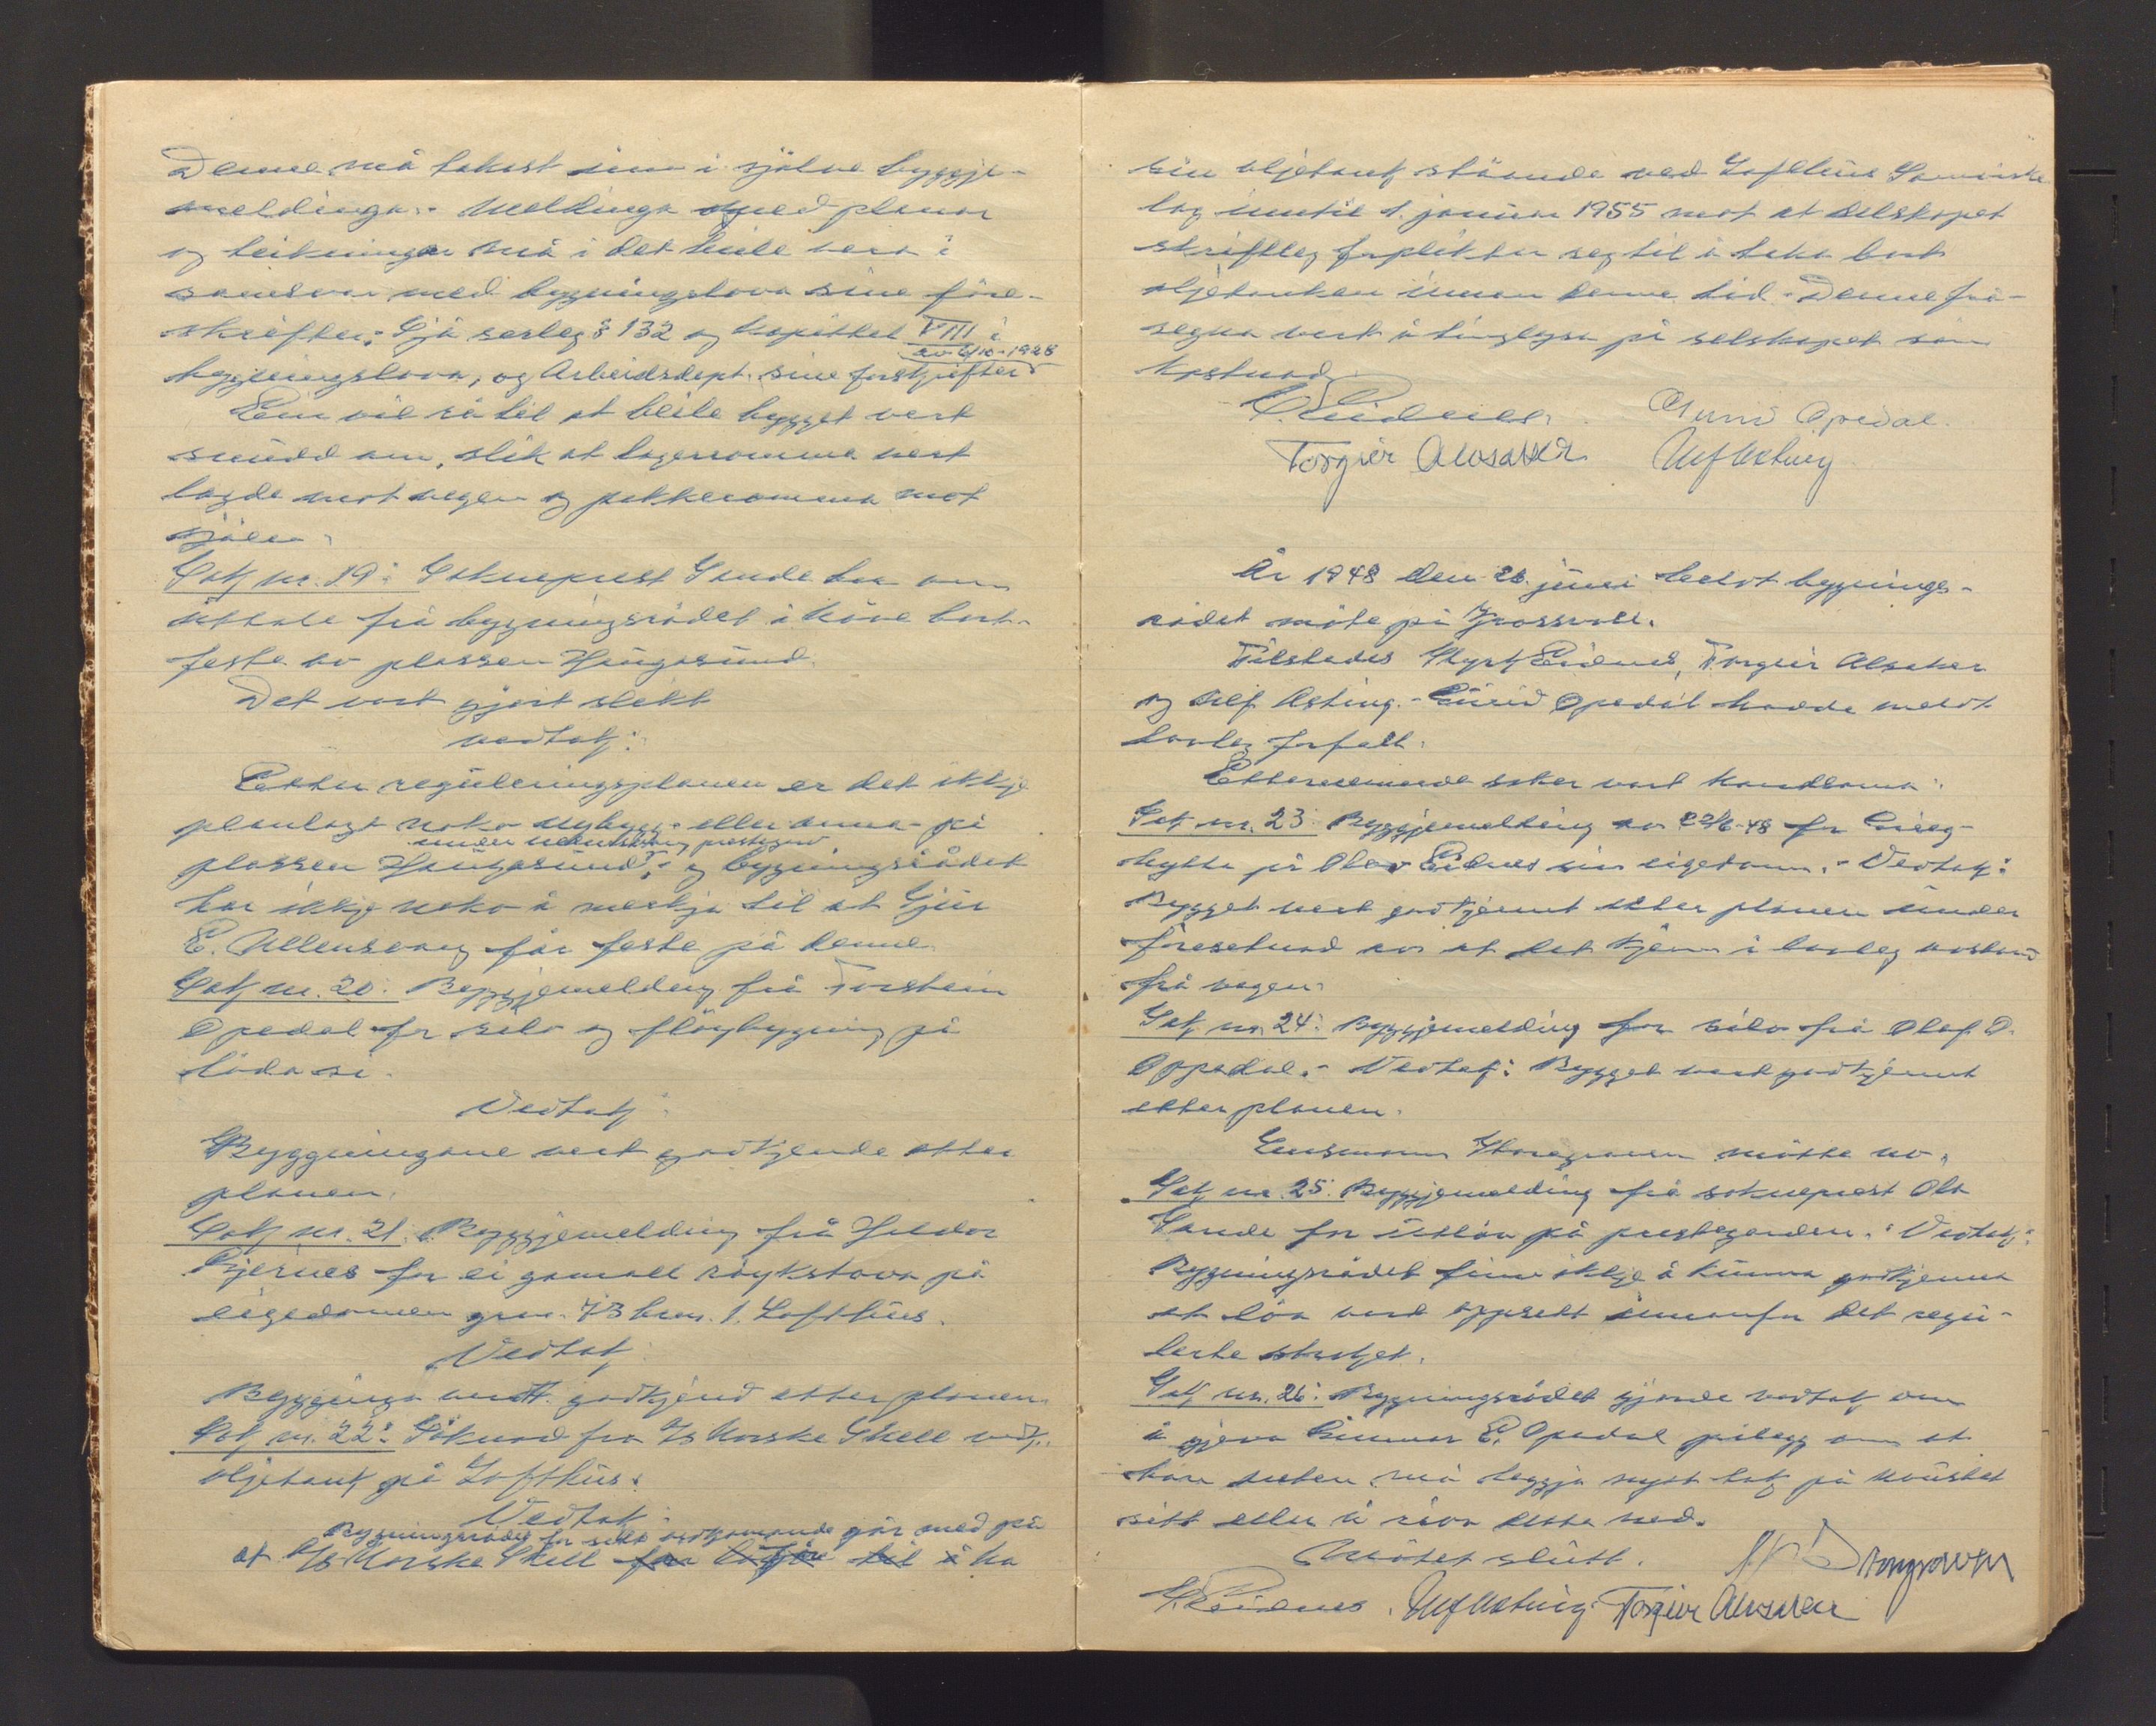 Denne må takast inn i sjölve byggje-
meldinga. Meldinga med planar
og teikningar må i det heile vera i
samsvar med bygningslova sine före-
skrifter. Sjå serleg § 132 og kapittel VIII i
bygningslova, og Arbeidsdept. sine forskrifter av 6/10-1928
Ein vil rå til at heile bygget vert
snudd om, slik at lagerromma vert
lagde mot vegen og pakkeromma mot
sjöen.
Sak nr. 19: Sokneprest Sande har om
uttale frå bygningsrådet i höve bort-
feste av plassen Haugasund.
Det vart gjort slikt
vedtak:
Etter reguleringsplanen er det ikkje
planlagt noko nybygg eller anna på
plassen Haugasund under Ullensvang prestegard, og bygningsrådet
har ikkje noko å merkja til at
E. Ullensvang får feste på denne.
Sak nr. 20: Byggjemelding frå Torstein
Opedal for silo og flöybygning på
löda si.
Vedtak:
Byggningane vert godkjende etter
planen.
Sak nr. 21. Byggjemelding frå Haldor
Bjernes for ei gamall röykstova på
eigedomen grn. 73 brn. 1. Lofthus.
Vedtak:
Bygginga vert godkjend etter planen.
Sak nr. 22: Söknad fra A/S Norske Shell vedk.
oljetank på Lofthus.
Vedtak:
Bygningsrådet for sitt vedkomande går med på
at A/S Norske Shell får höve til å ha
sin oljetank ståande ved Lofthus Samvirke
lag inntil 1. januar 1955 mot at selskapet
skriftleg forpliktar seg til å taka bort
oljetanken innan denne tid. Denne frå-
segna vert å tinglysa på selskapet sin
kostnad.
S. Eidnes. Gunn Opedal.
Torgeir Alvsaker Ulf Asting
År 1948 den 26. juni heldt bygnings-
rådet möte på Grossvoll.
Tilstades Styrk Eidnes, Torgeir Alsaker
og Ulf Asting. Opedal hadde meldt
lovleg forfall.
Etternemnde saker vart handsama:
Sak nr. 23 Byggjemelding av 22/6-48 for
hytte på Olav Eidnes sin eigedom. Vedtak:
Bygget vert godkjennt etter planen under
föresetnad av at det kjem i lovleg avstand
frå vegen.
Sak nr. 24: Byggjemelding for silo frå Olaf O.
Oppedal. - Vedtak: Bygget vert godkjennt
etter planen.
Lensmann Storegraven mötte no.
Sak nr. 25: Byggjemelding frå sokneprest Ola
Sande for utlöa på prestegarden. Vedtak:
Bygningsrådet finn ikkje å kunna godkjenna
at löa vert oppsett innanfor det regu-
lerte stroket.
Sak nr. 26: Bygningsrådet gjorde vedtak om
å gjeva Gunnar E. Opedal pålegg om at
han anten må leggja nytt tak på naustet
sitt eller å riva dette ned.
Mötet slutt.
S. Eidnes. Ulf Asting. Torgeir Alvsaker